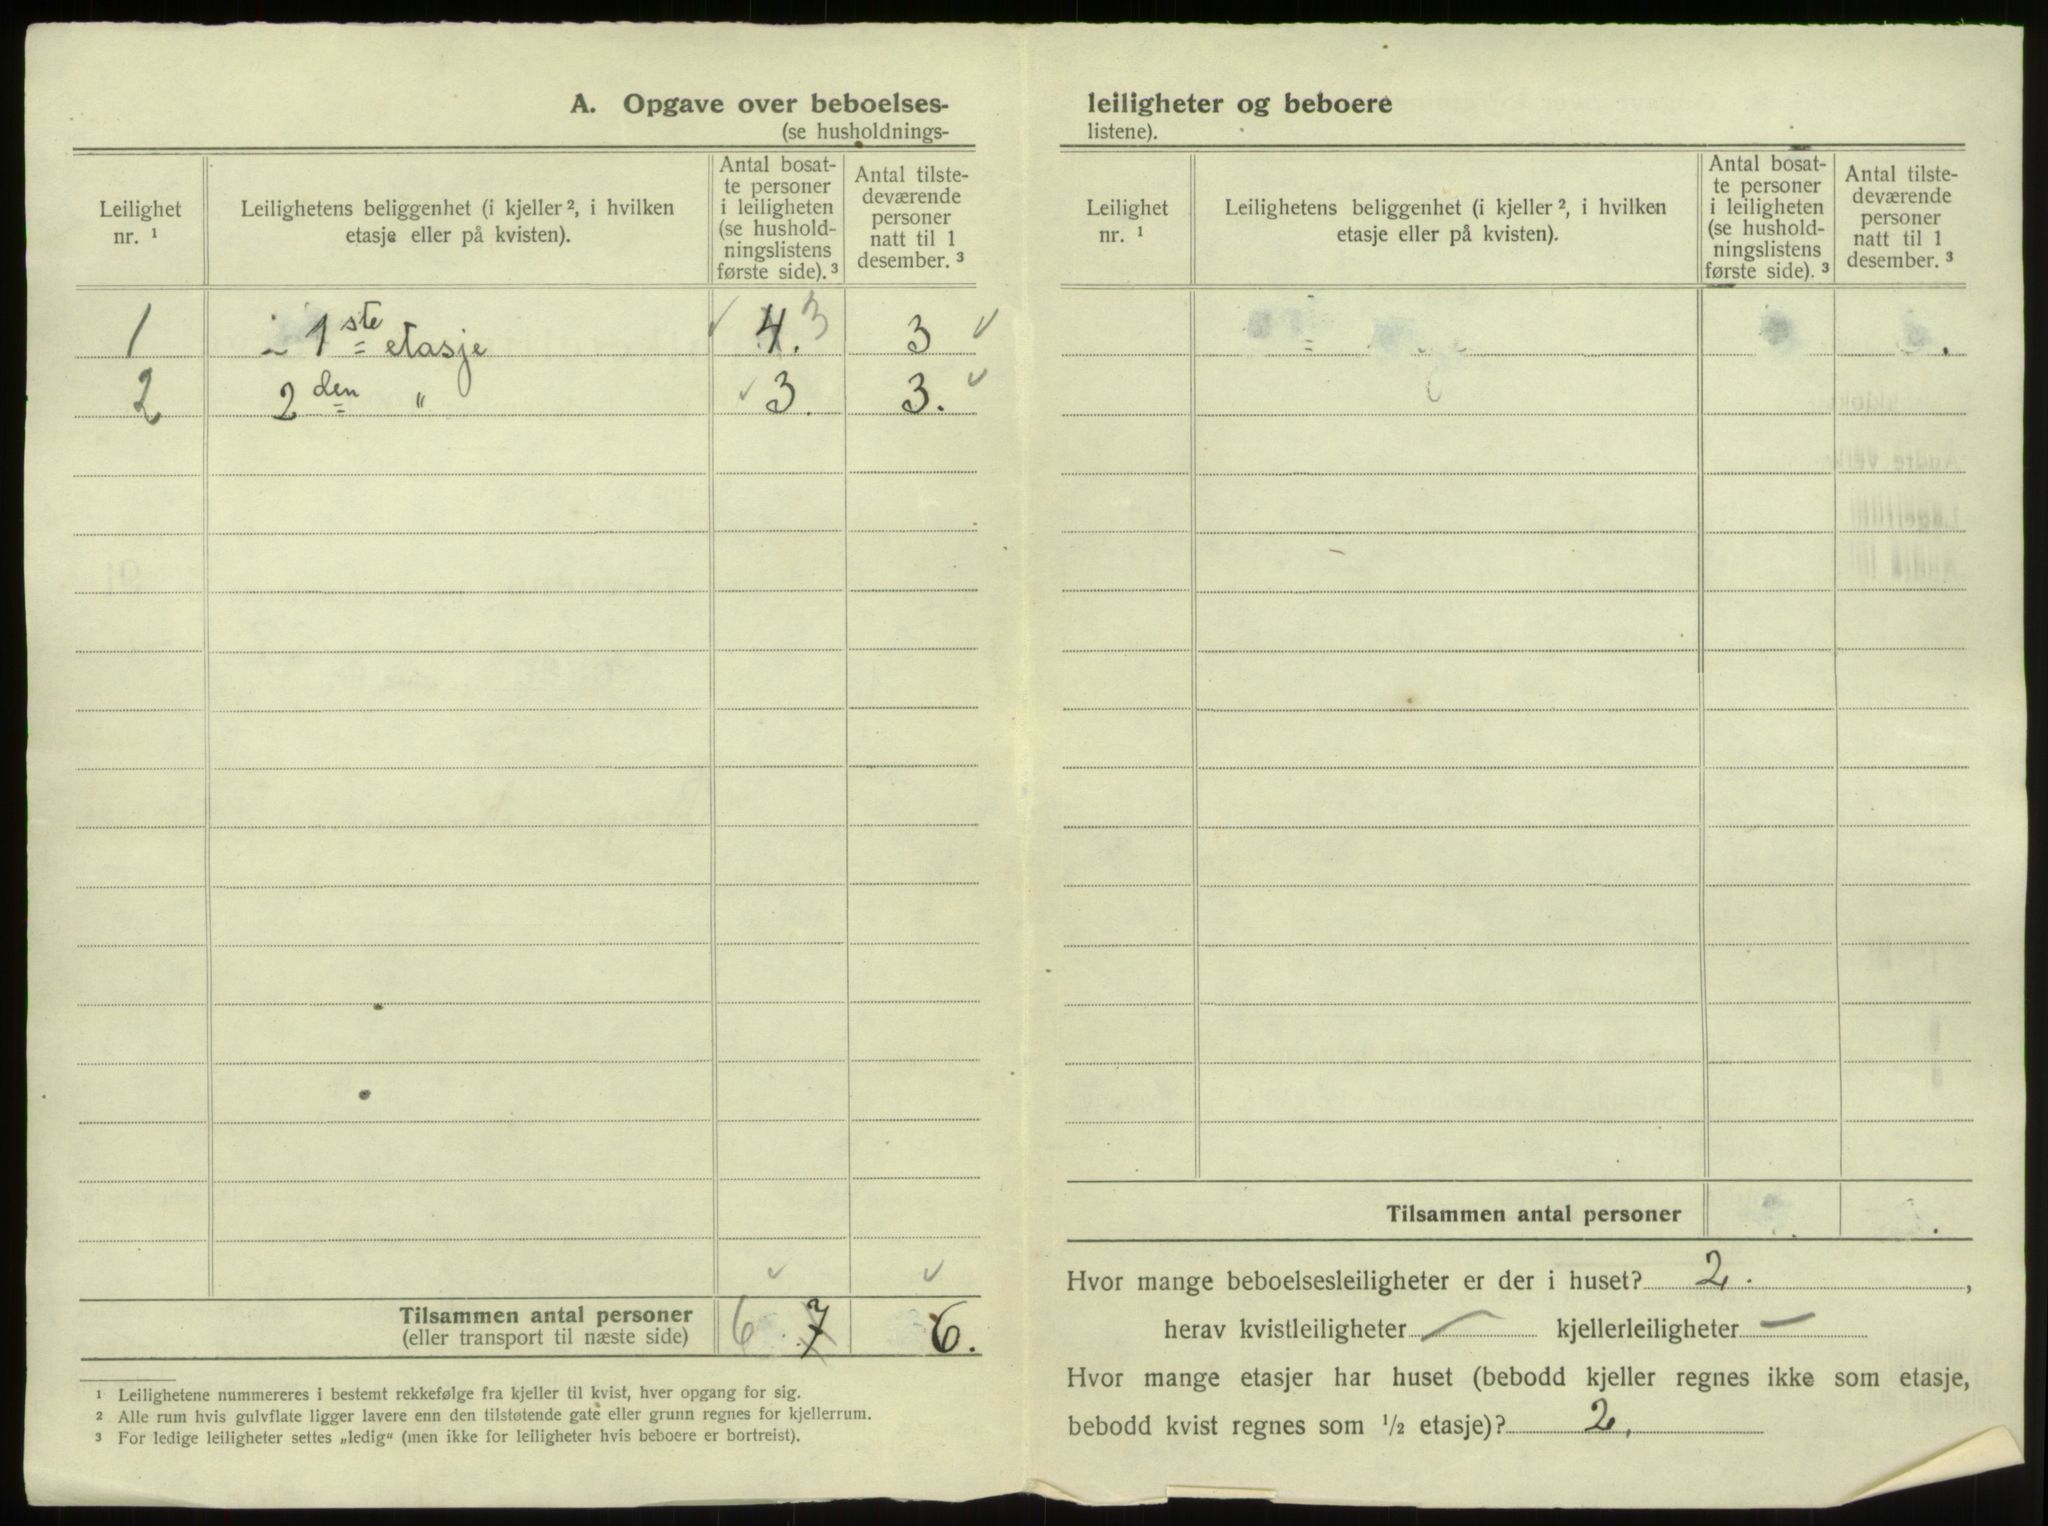 A. Opgave over beboelses-
(se husholdnings-
Leilighet nr. ¹
Leilighetens beliggenhet (i kjeller ², i hvilken
etasje eller på kvisten).
Antal bosat-
te personer
i leiligheten
(se hushold-
ningslistens
første side). ³
Antal tilste-
deværende
personer
natt til 1
desember. ³
1 i 1ste etasje 4. 3 3 ✓
2 2den " ✓ 3. 3. ✓
Tilsammen antal personer 6 7 6.
(eller transport til næste side)
¹ Leilighetene nummereres i bestemt rekkefølge fra kjeller til kvist, hver opgang for sig.
² Alle rum hvis gulvflate ligger lavere enn den tilstøtende gate eller grunn regnes for kjellerrum.
³ For ledige leiligheter settes „ledig“ (men ikke for leiligheter hvis beboere er bortreist).
leiligheter og beboere
listene).
Leilighet nr. ¹
Leilighetens beliggenhet (i kjeller ², i hvilken
etasje eller på kvisten).
Antal bosat-
te personer
i leiligheten
(se hushold-
ningslistens
første side). ³
Antal tilste-
deværende
personer
natt til 1
desember. ³
Tilsammen antal personer
Hvor mange beboelsesleiligheter er der i huset? 2. ,
herav kvistleiligheter — kjellerleiligheter —
Hvor mange etasjer har huset (bebodd kjeller regnes ikke som etasje,
bebodd kvist regnes som ¹/₂ etasje)? 2.